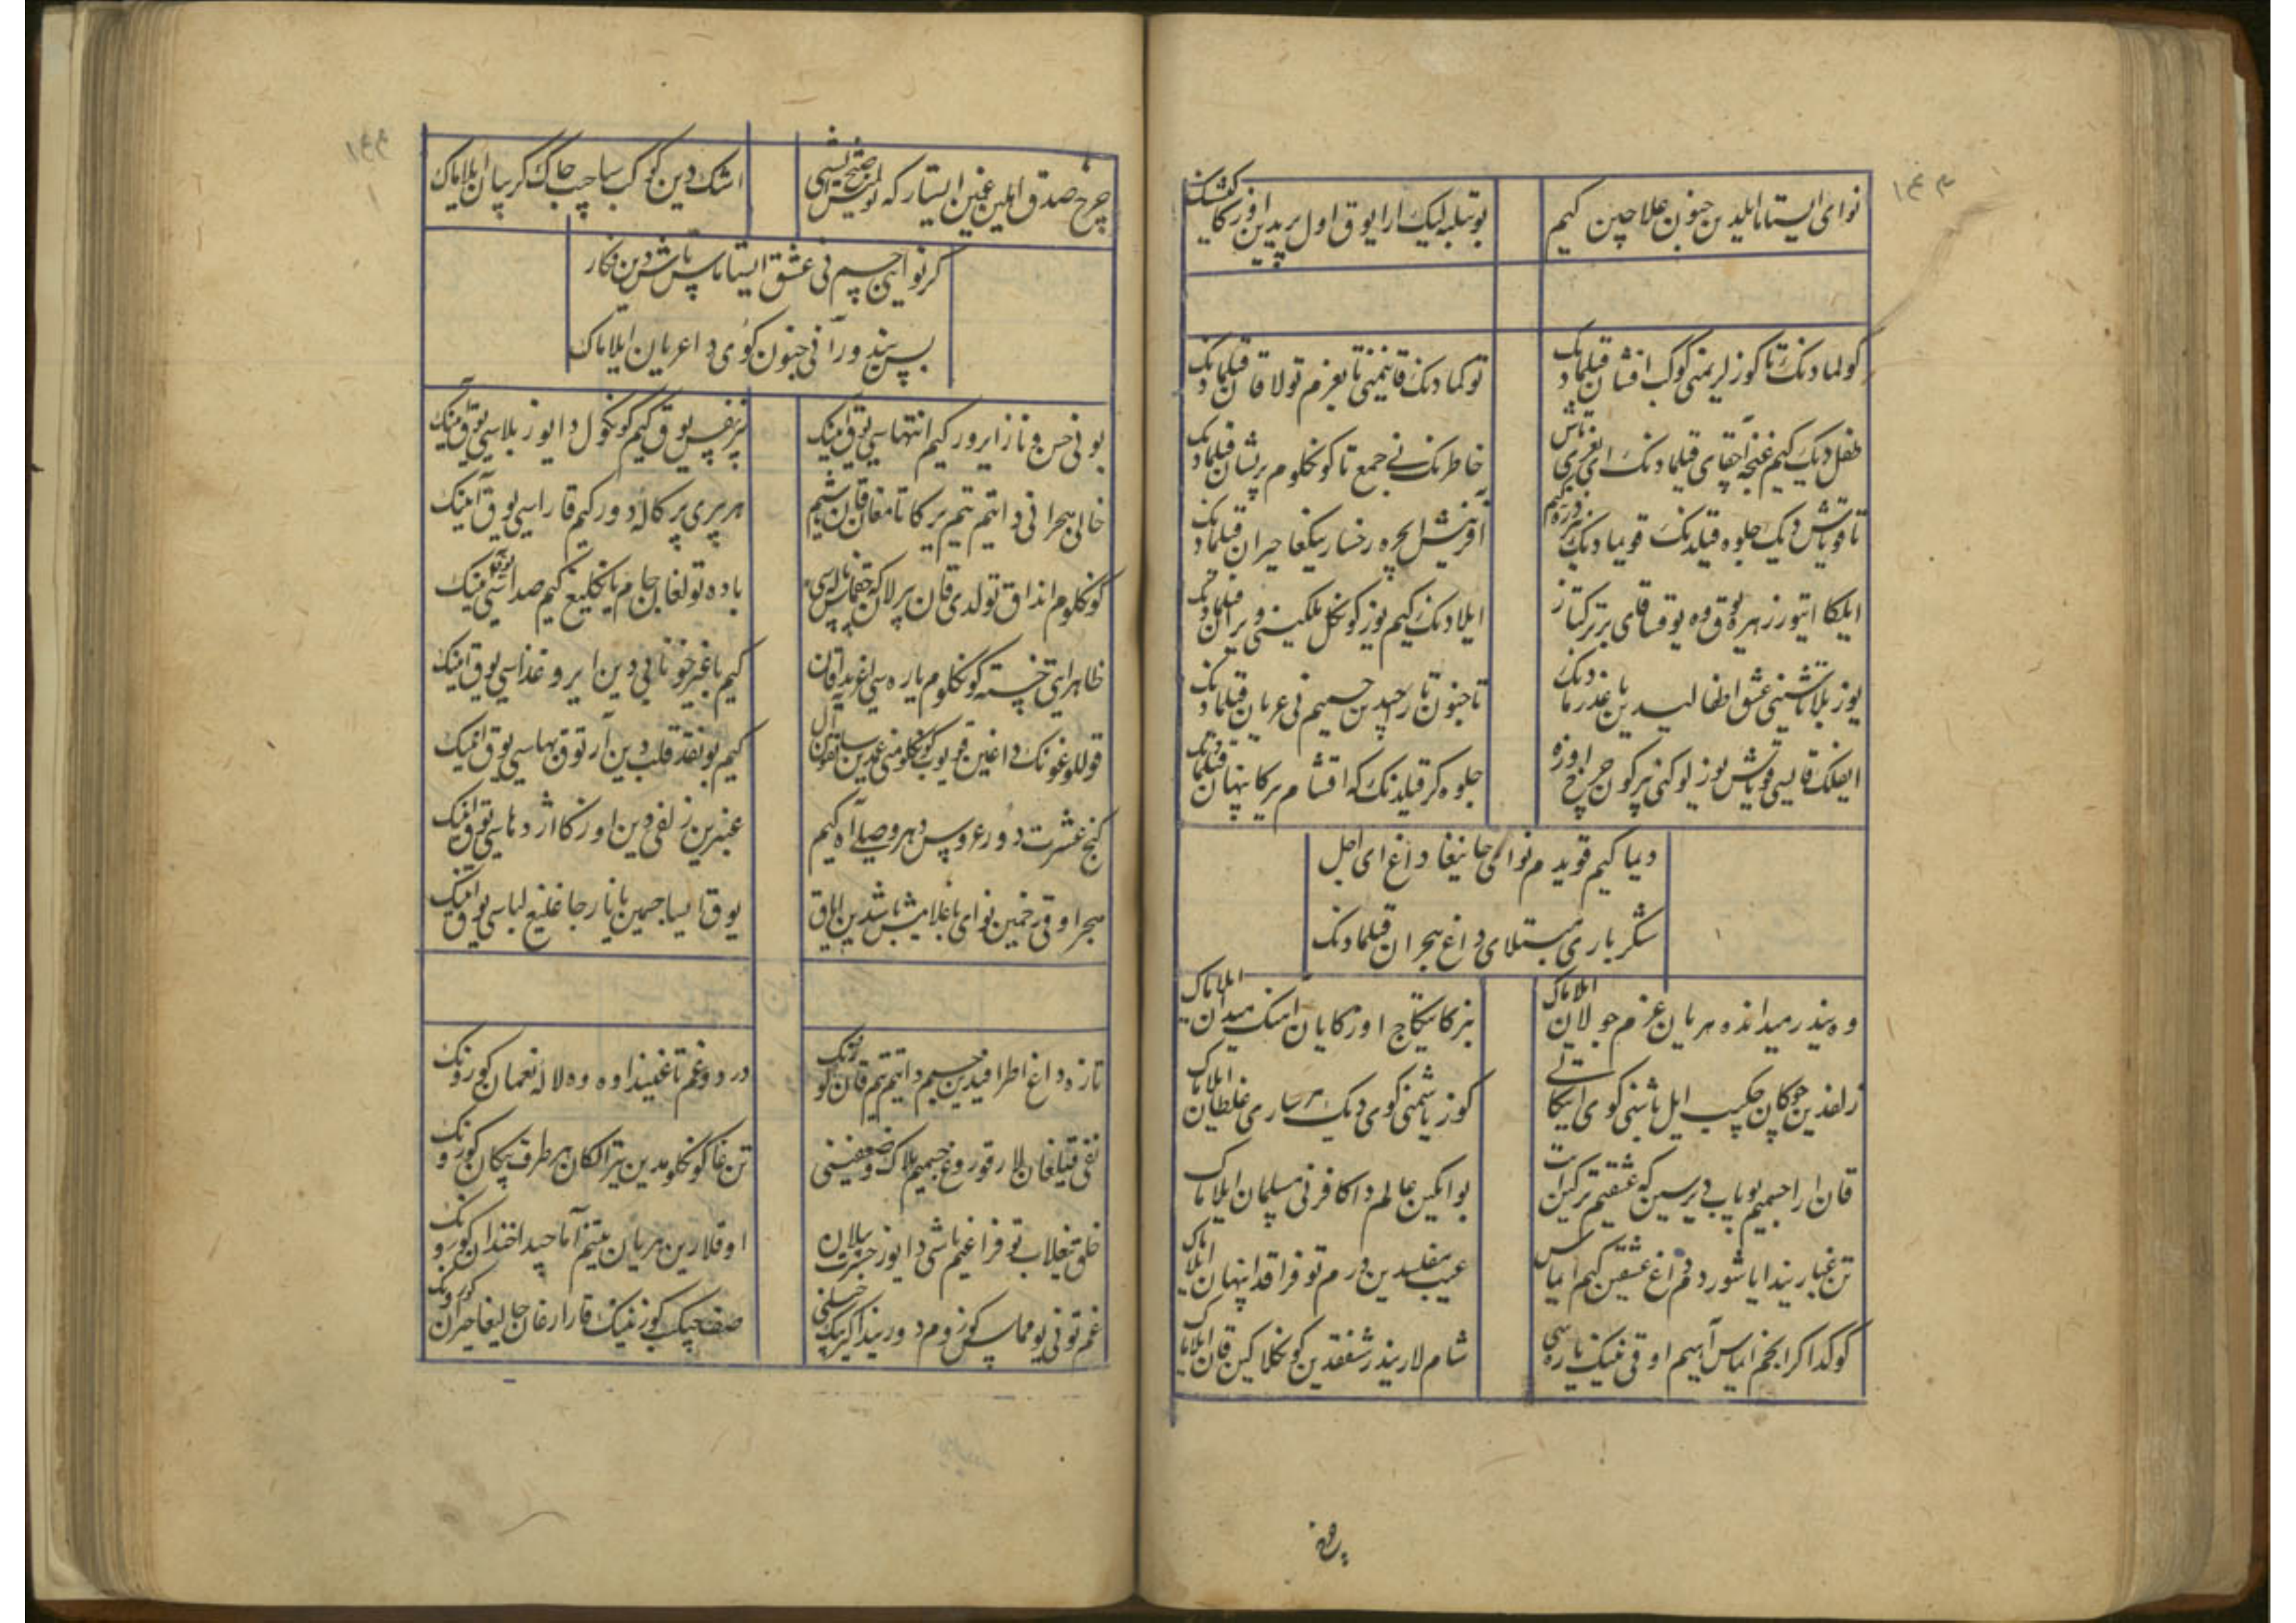 نوای ایستاما ایلیدین جنون علاجین کیم
بو قبیله لیک ارا یوق اول پریدین اوزکا کشنک
کولمادینک تا کوزلریمنی کوکب افشان قیلمادینک
توکمادینک قانیمنی تا بغریم تولا قان قیلمادینک
طفل دیک کیم غنچه آچقای قیلمادینک ای بغری تاش
خاطرینک نی جمع تا کونکلوم پریشان قیلمادینک
تا قویاش دیک جلوه قیلدینک قویمادینک بیر ذره کیم
آفرینش ایچره رخسارینکغا حیران قیلمادینک
ایلکا ایتور زهره یوق وه یوقسا قای بیر ترکتاز
ایلادینک کیم یوز کونکل ملکینی ویران قیلمادینک
یوز بلا تاشینی عشق اطفالیدین یاغدورمادینک
تا جنون تاریدین جسمیم نی عریان قیلمادینک
ایفلک قایسی قویاش یوزلوکنی بیر کون چرخ اوزه
جلوه کر قیلدینک که اقشام یرکا پنهان قیلمادینک
دیما کیم قویدوم نوائی جانیغا داغ ای اجل
شکر باری مبتلای داغ هجران قیلمادینک
وه نیدور میدانده هر یان عزم جولان ایلاماک
بیزکا ییتکاچ اوزکا یان آهنک میدان ایلاماک
زلفدین چوکان چیکیب ایل باشینی کوی ایتکالی
کوز یاشیمنی کوی دیک هر ساری غلطان ایلاماک
قان ارا جسمیم یوپاب دیرسین که عشقیم ترکین ایت
بو ایمکین عالمدا کافرنی مسلمان ایلاماک
تن غباریندا یاشوردوم داغ عشقین کیم ایماس
عیب مفلسدین درم توفراقدا پنهان ایلاماک
کوکدا کر انجم ایماس آهیم اوقی نینک یاره سی
شاملار نیدور شفقدین کونکلاکین قان ایلاماک
چرخ صدق اهلین غمین ایستار که بولمیش صبح ایشی
اشک دین کوکب ساچیب چاک کریبان ایلاماک
کر نوائی جسمی نی عشق ایستاماس تاشدین فکار
بس نیدور آنی جنون کویی دا عریان ایلاماک
بو نی حسن و ناز ایرور کیم انتهاسی یوق آنینک
بیر نفس یوق کیم کونکول دا یوز بلاسی یوق آنینک
خالی هجرانی دا ایتمیم تیم بیر کا تامغان قان ایشیم
هر بیری پرکاله دور کیم قاراسی یوق آنینک
کونکلوم انداق تولدی قان بیرلا که چیقماس ناله سی
باده تولغان جام یانکلیغ کیم صداسی یوق آنینک
ظاهر ایتی خسته کونکلوم یاره سی اغزیدا قان
کیم باغیر خونابی دین ایرو غذاسی یوق آنینک
قوللوغونک داغین قویوب کونکلومنی غمدین ساتقون ال
کیم بو نقد قلب دین آرتوق بهاسی یوق آنینک
کنج عشرت دور عروس دهر وصلی آه کیم
عنبرین زلفی دین اوزکا اژدهاسی یوق آنینک
هجر اوقی زخمین نوائی باغلامیش باشدین ایاق
یوق ایسا جسمین یاپارجا غلیغ لباسی یوق آنینک
تازه داغ اطرافیدین جسمیم دا ایتیم تیم قان کورونک
درد و غم تاغینذا وه وه لاله نعمان کورونک
نفی قیلغانلار قوروغ جسمیم بلاک ضعفینی
تن غا کونکلومدین تیزالکان هر طرف پیکان کورونک
خلق ییغلاب توفراغیم باشی دا یوز حسرت بیلان
اوقلارین هر یان تنیم آماجیدا خندان کورونک
غم تونی یومماس کوزوم دورینداکی کیربیک خیلی
صف چیکیب کوزنینک قارارغان جالیغا حیران کورونک